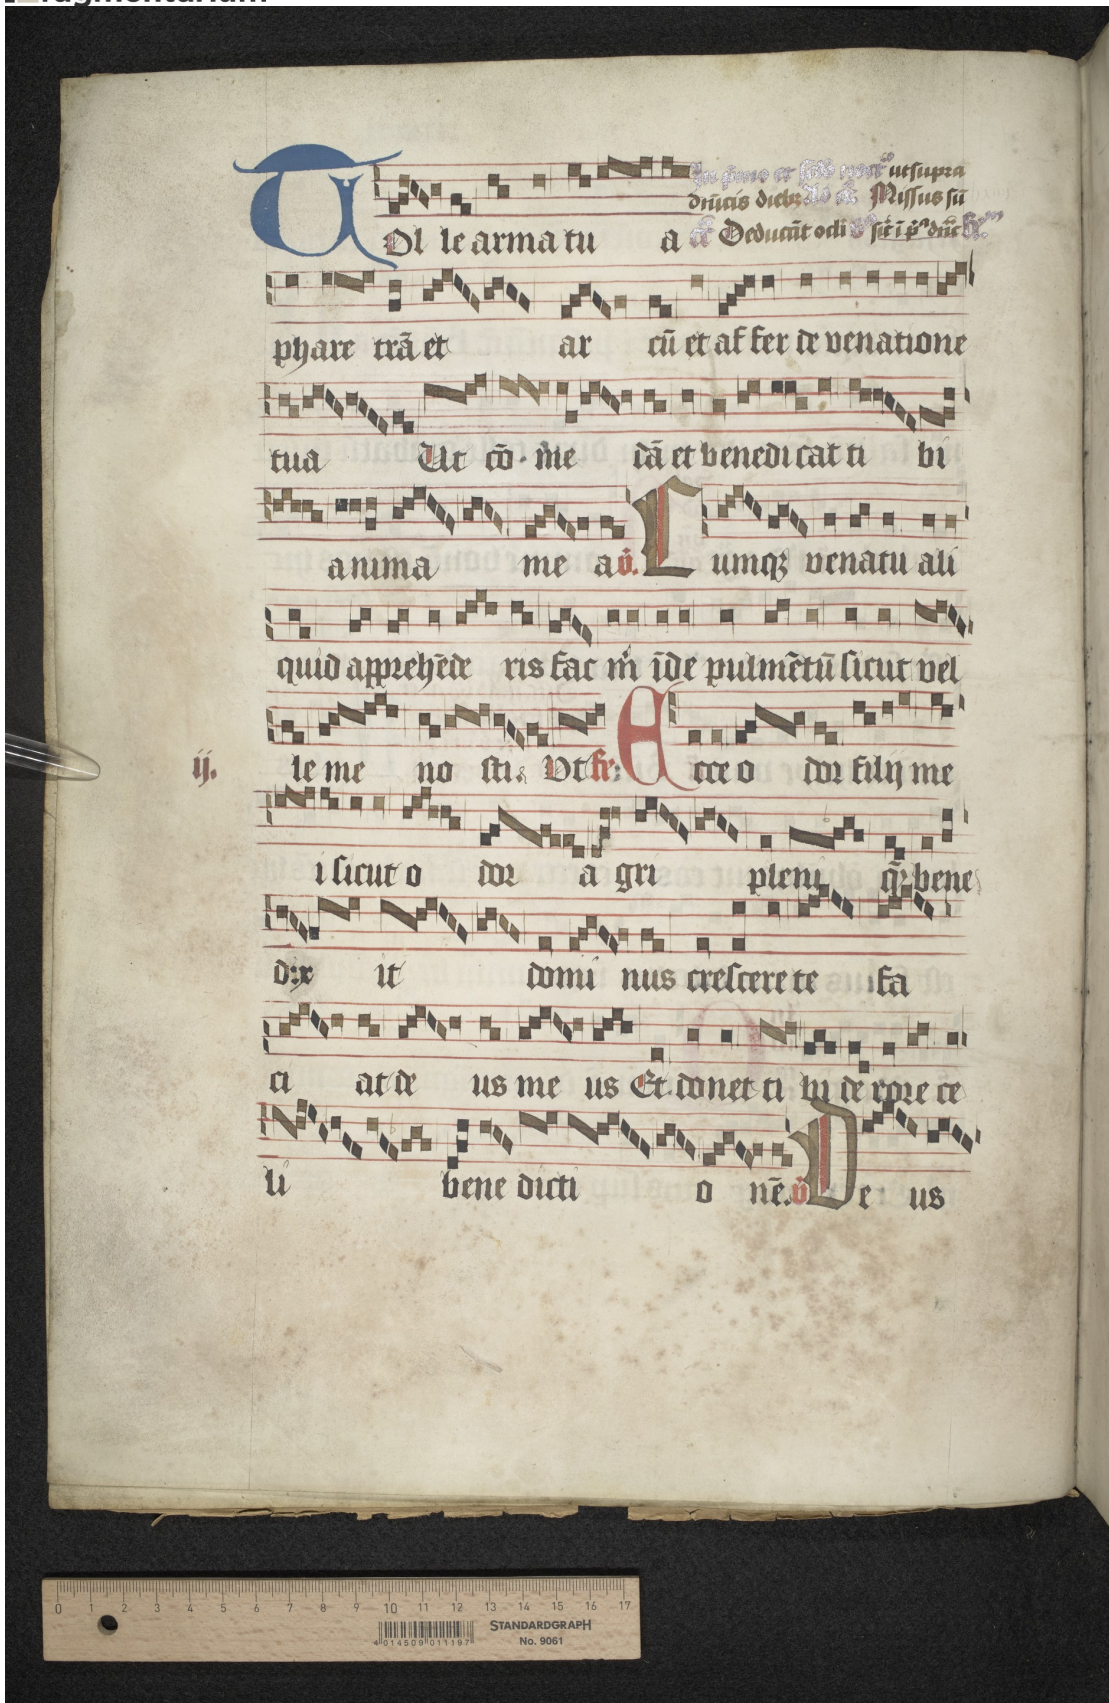 utsupra
dnicis diebz Missus sū
TOl le arma tu a Deducūt ocli
phare trā et ar cū et af fer de venatione
tua Ut cō me dā et benedicat ti bi
anima me a v̄. Cumqz venatu ali
quid apprehēde ris fac m̄ īde pulmētū sicut vel
ij. le me no sti. Ut Re: Ecce o dor filij me
i sicut o dor a gri pleni q̄ bene
dix it domi nus crescere te fa
ci at de us me us Et donet ti bi de rore ce
li bene dicti o nē. v̄ De us
0 1 2 3 4 5 6 7 8 9 10 11 12 13 14 15 16 17
4 014509 011197
STANDARDGRAPH
No. 9061